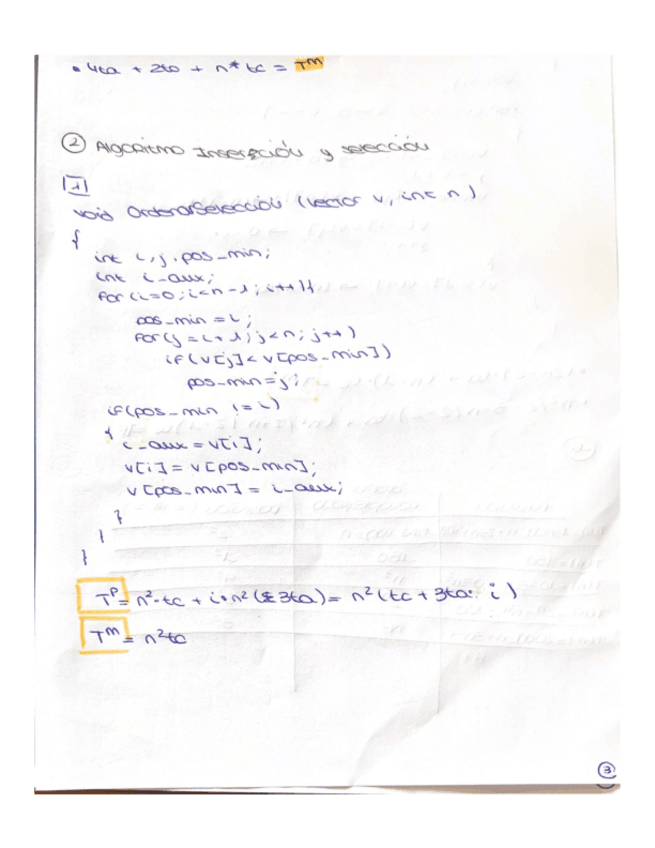 • 4ta + 2to + n* tc = TM
② Algoritmo Inserción y selección
1
void OrdenarSelección (vector v, int n)
{
int i, j, pos_min;
int i_aux;
for (i=0; i<n-1; i++){
pos_min = i;
for (j = i+1; j<n; j++)
if (v[j] < v[pos_min])
pos_min = j;
if (pos_min != i)
{
i_aux = v[i];
v[i] = v[pos_min];
v[pos_min] = i_aux;
}
}
}
TP = n²·tc + i·n² ( 3ta) = n² (tc + 3ta· i)
TM = n²tc
③